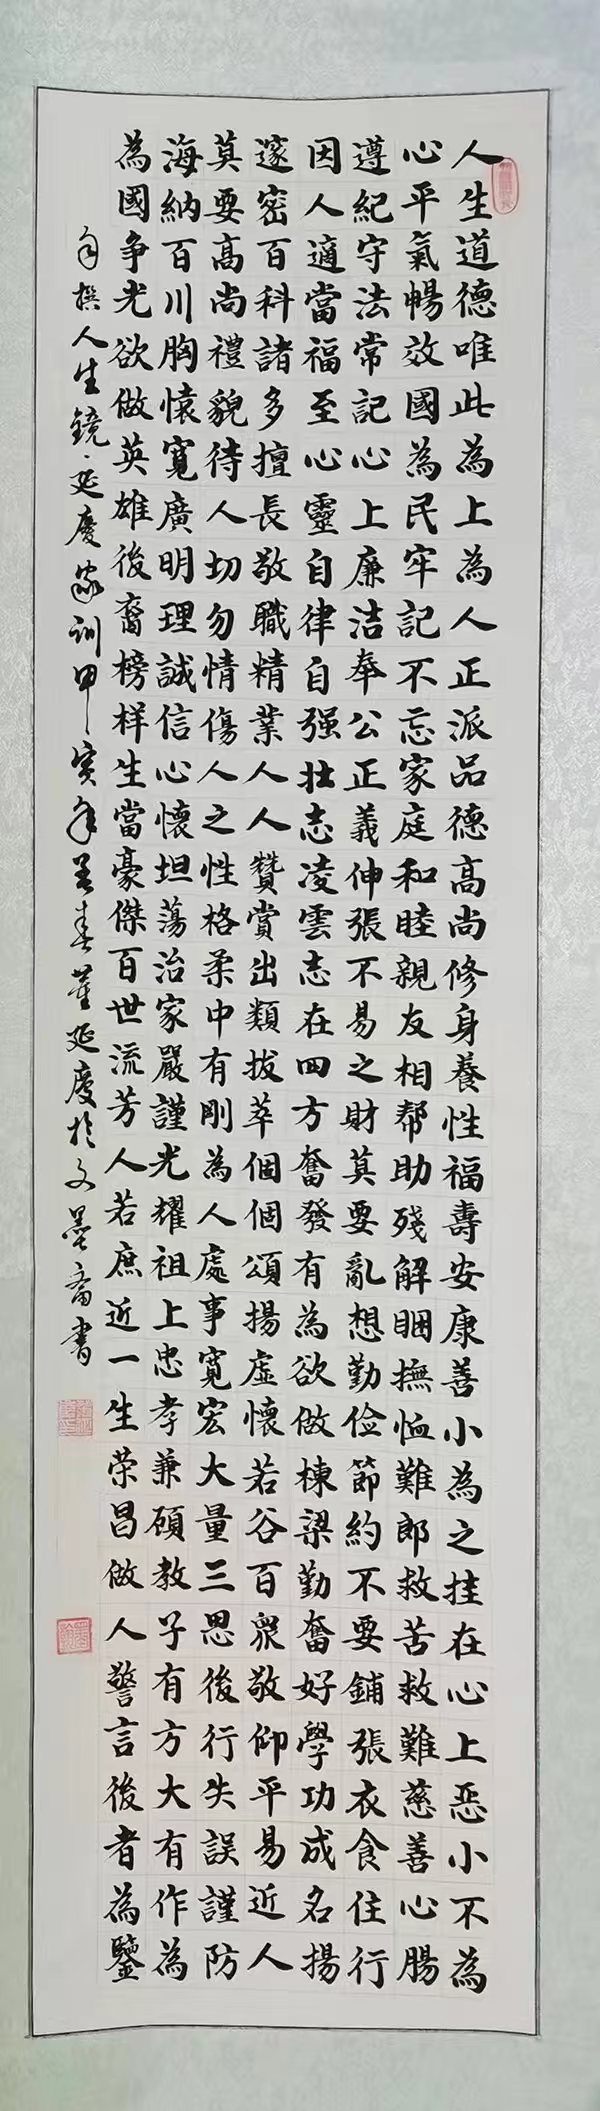 人生道德唯此為上為人正派品德高尚修身養性福壽安康善小為之挂在心上惡小不為
心平氣暢效國為民牢記不忘家庭和睦親友相帮助殘解困撫恤難郎救苦救難慈善心腸
遵紀守法常記心上廉洁奉公正義伸張不易之財莫要亂想勤俭節約不要鋪張衣食住行
因人適當福至心靈自律自强壮志凌雲志在四方奮發有為欲做棟梁勤奮好學功成名揚
邃密百科諸多擅長敬職精業人人贊賞出類拔萃個個頌揚虛懷若谷百眾敬仰平易近人
莫要高尚禮貌待人切勿情傷人之性格柔中有剛為人處事寬宏大量三思後行失誤謹防
海納百川胸懷寬廣明理誠信心懷坦蕩治家嚴謹光耀祖上忠孝兼顾教子有方大有作為
為國争光欲做英雄後裔榜样生當豪傑百世流芳人若庶近一生荣昌做人警言後者為鑒
自撰人生鏡延慶家訓甲寅年孟春董延慶於文墨斋書